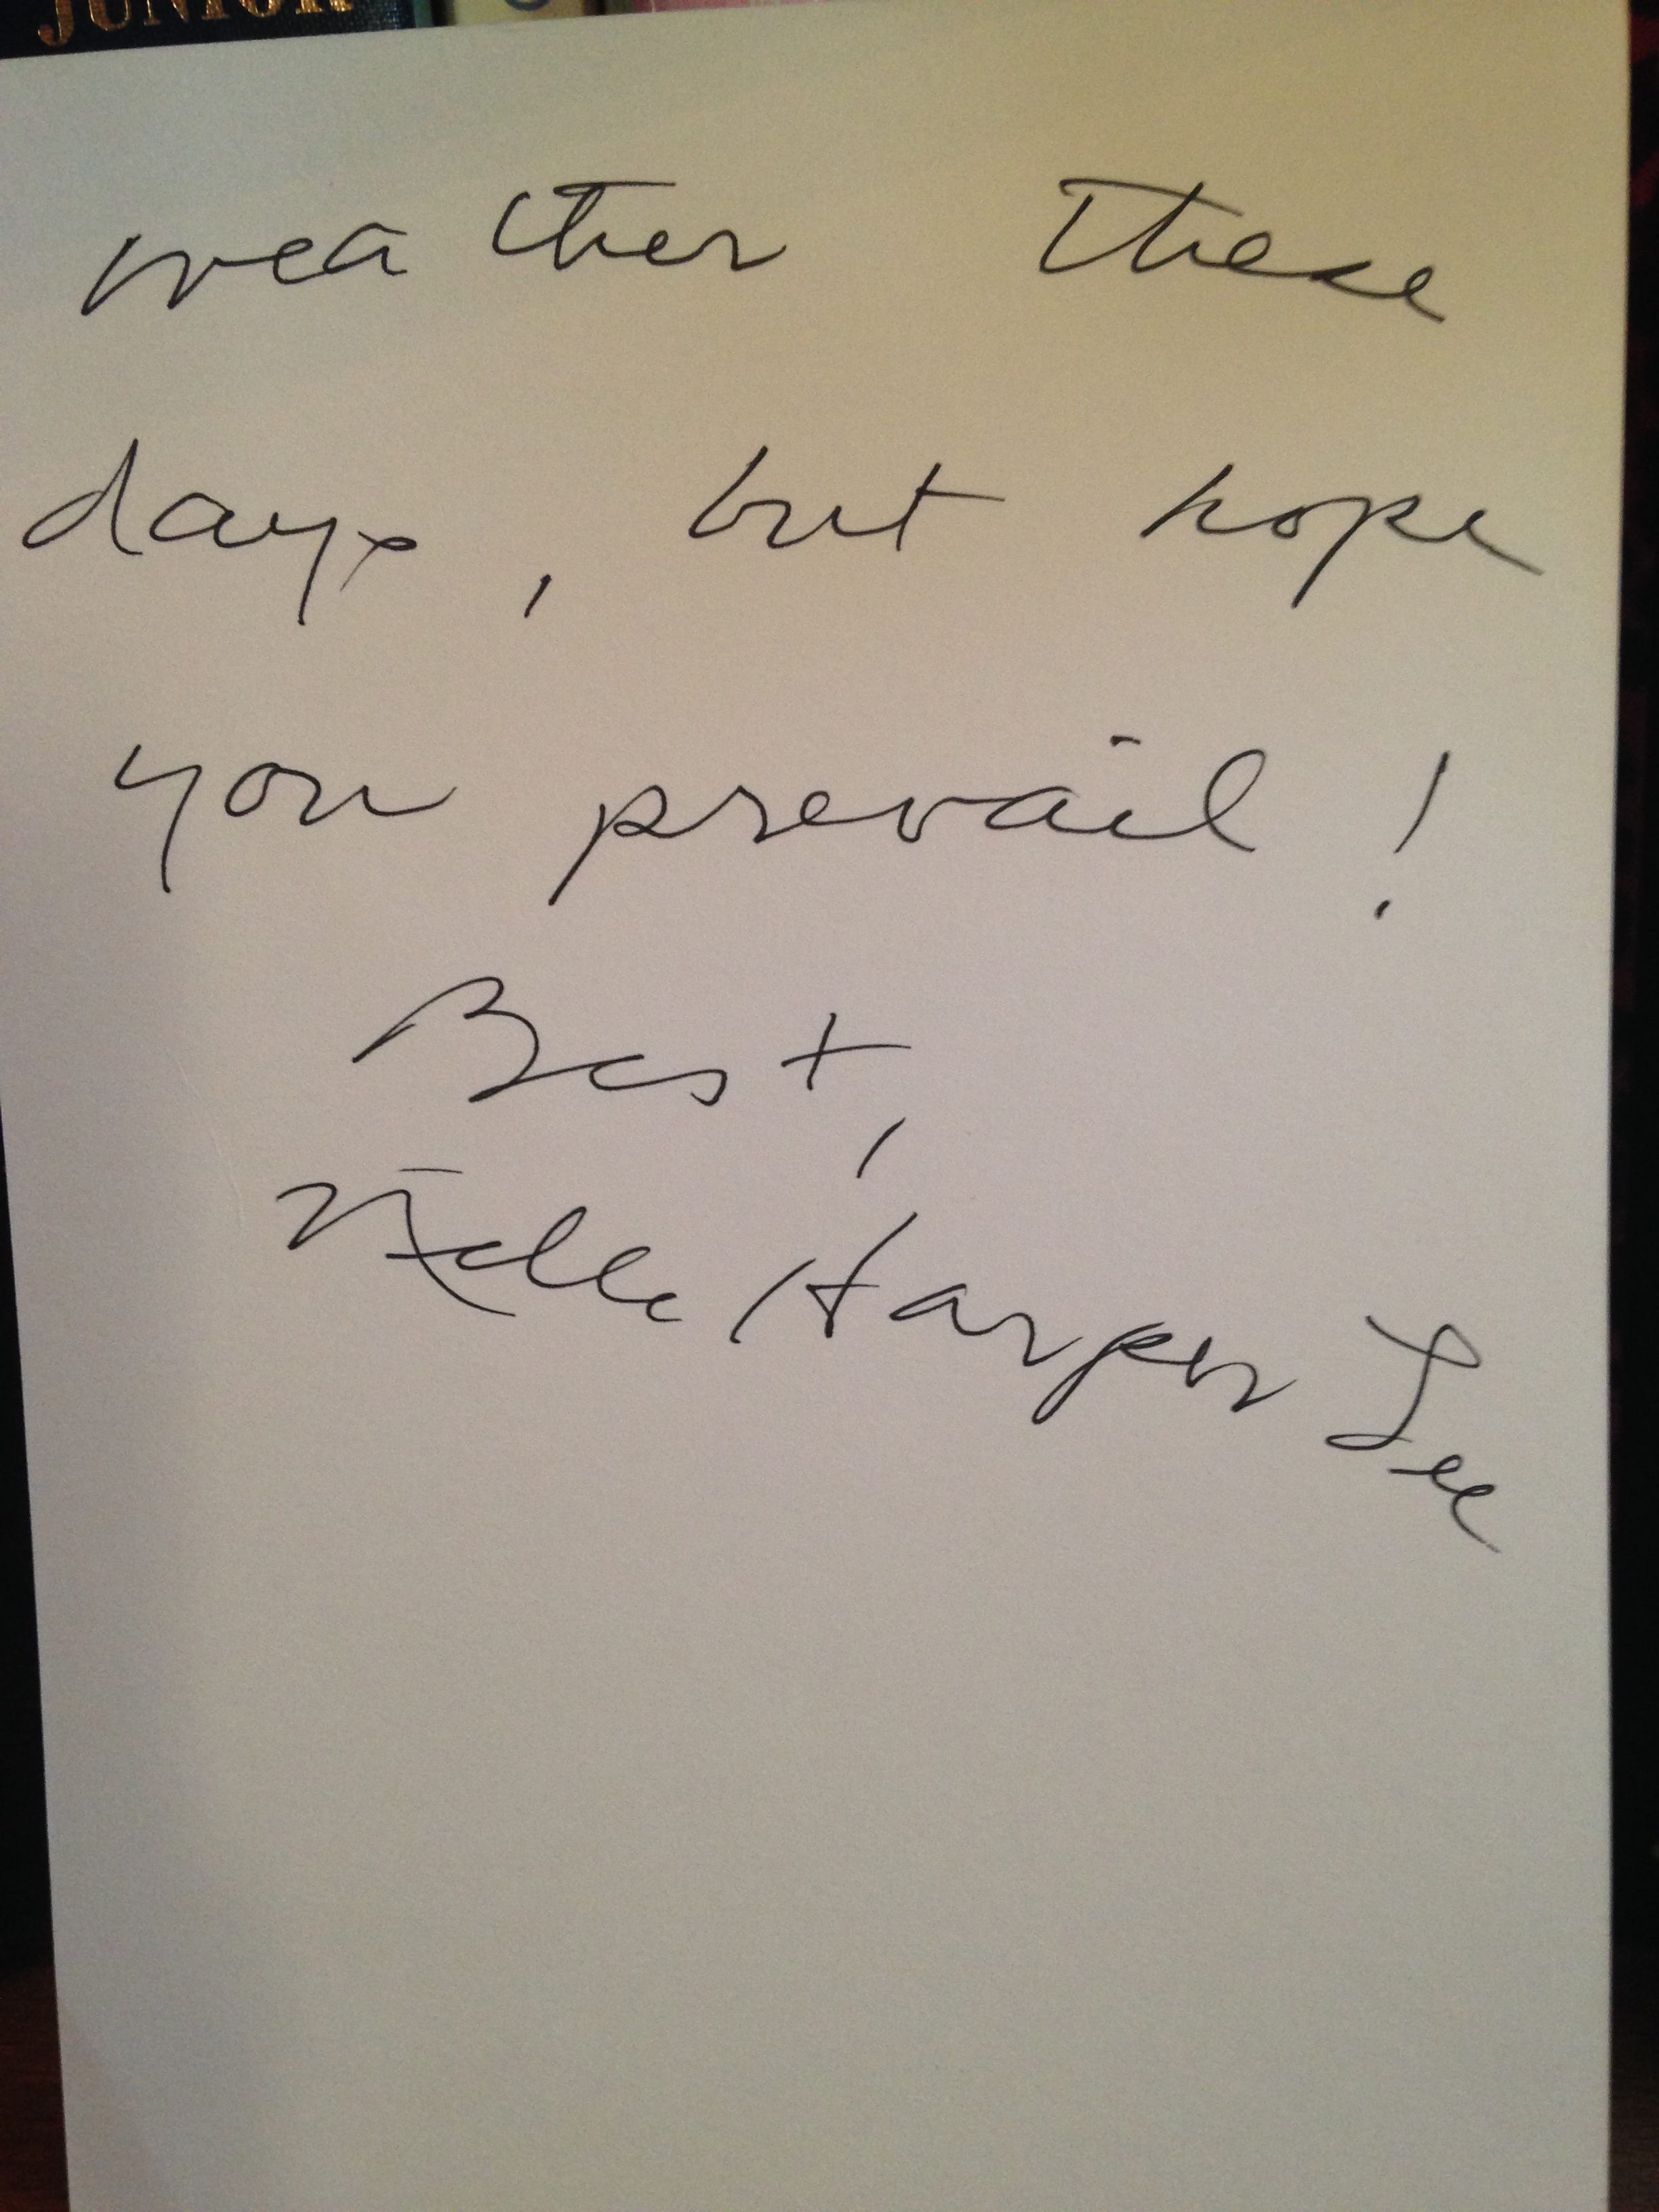 JUNIOR
weather these
days, but hope
you prevail!
Best,
Nelle Harper Lee